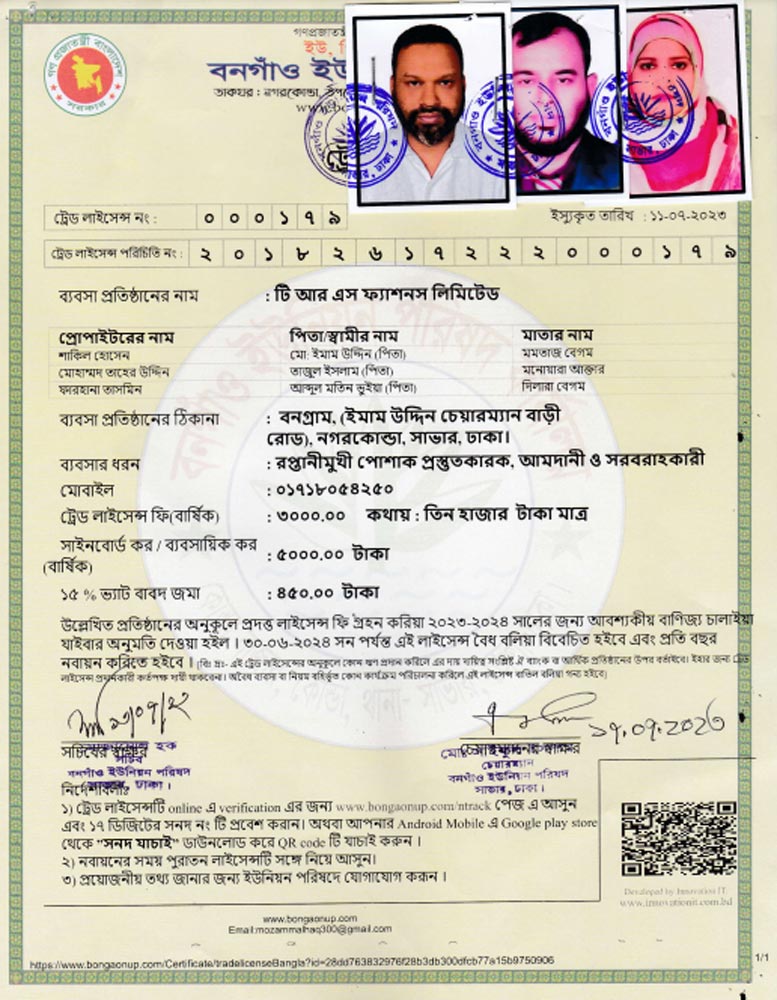 গণপ্রজাতন্ত্রী বাংলাদেশ
সরকার
বনগাঁও
ডাকঘর : নগরকোন্ডা,
ট্রেড লাইসেন্স নং : ০ ০ ০ ১ ৭ ৯ ইস্যুকৃত তারিখ : ১১-০৭-২০২৩
ট্রেড লাইসেন্স পরিচিতি নং : ২ ০ ১ ৮ ২ ৬ ১ ৭ ২ ২ ২ ০ ০ ০ ১ ৭ ৯
ব্যবসা প্রতিষ্ঠানের নাম : টি আর এস ফ্যাশনস লিমিটেড
প্রোপাইটরের নাম পিতা/স্বামীর নাম মাতার নাম
শাকিল হোসেন মো: ইমাম উদ্দিন (পিতা) মমতাজ বেগম
মোহাম্মদ তাহের উদ্দিন তাজুল ইসলাম (পিতা) মনোয়ারা আক্তার
ফদরহানা তাসমিন আব্দুল মতিন ভুইয়া (পিতা) দিলারা বেগম
ব্যবসা প্রতিষ্ঠানের ঠিকানা : বনগ্রাম, (ইমাম উদ্দিন চেয়ারম্যান বাড়ী
রোড), নগরকোন্ডা, সাভার, ঢাকা।
ব্যবসার ধরন : রপ্তানীমুখী পোশাক প্রস্তুতকারক, আমদানী ও সরবরাহকারী
মোবাইল : ০১৭১৮০৫৪২৫০
ট্রেড লাইসেন্স ফি(বার্ষিক) : ৩০০০.০০ কথায় : তিন হাজার টাকা মাত্র
সাইনবোর্ড কর / ব্যবসায়িক কর : ৫০০০.০০ টাকা
(বার্ষিক)
১৫ % ভ্যাট বাবদ জমা : ৪৫০.০০ টাকা
উল্লেখিত প্রতিষ্ঠানের অনুকুলে প্রদত্ত লাইসেন্স ফি গ্রহন করিয়া ২০২৩-২০২৪ সালের জন্য আবশ্যকীয় বাণিজ্য চালাইয়া
যাইবার অনুমতি দেওয়া হইল । ৩০-০৬-২০২৪ সন পর্যন্ত এই লাইসেন্স বৈধ বলিয়া বিবেচিত হইবে এবং প্রতি বছর
নবায়ন করিতে হইবে । (বি: দ্র:- এই ট্রেড লাইসেন্সের অনুকুলে কোন ঋণ প্রদান করিলে এর দায় দায়িত্ব সংশ্লিষ্ট ঐ ব্যাংক বা আর্থিক প্রতিষ্ঠানের উপর বর্তাইবে। ইহার জন্য ট্রেড
লাইসেন্স প্রদানকারী কর্তৃপক্ষ দায়ী থাকবেনা। অবৈধ ব্যবসা বা নিয়ম বহির্ভূত কোন কার্যক্রম পরিচালনা করিলে এই লাইসেন্স বাতিল বলিয়া গন্য হইবে)
১৭.০৭.২০২৩
সচিবের স্বাক্ষর
সচিব
বনগাঁও ইউনিয়ন পরিষদ
সাভার, ঢাকা ।
চেয়ারম্যান
বনগাঁও ইউনিয়ন পরিষদ
সাভার, ঢাকা ।
নির্দেশাবলীঃ
১) ট্রেড লাইসেন্সটি online এ verification এর জন্য www.bongaonup.com/ntrack পেজ এ আসুন
এবং ১৭ ডিজিটের সনদ নং টি প্রবেশ করান। অথবা আপনার Android Mobile এ Google play store
থেকে "সনদ যাচাই" ডাউনলোড করে QR code টি যাচাই করুন ।
২) নবায়নের সময় পুরাতন লাইসেন্সটি সঙ্গে নিয়ে আসুন।
৩) প্রয়োজনীয় তথ্য জানার জন্য ইউনিয়ন পরিষদে যোগাযোগ করুন ।
Developed by Innovation IT
www.innovationit.com.bd
www.bongaonup.com
Email:mozammalhaq300@gmail.com
https://www.bongaonup.com/Certificate/tradelicenseBangla?id=28dd763832976f28b3db300dfcb77a15b9750906
1/1